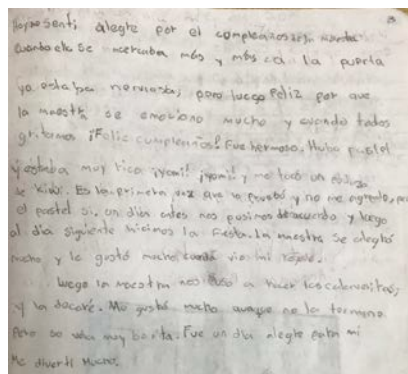 Hoy me sentí alegre por el cumpleaños maestra
cuando ella se acercaba más y más a la puerta
yo estaba nerviosa, pero luego feliz por que
la maestra se emociono mucho y cuando todos
gritamos ¡Feliz cumpleaños! Fue hermoso. Hubo pastel
y estaba muy rica ¡yomi! ¡yomi! y me tocó un
de kiwi. Es la primera vez que lo pruebo y no me agrado, pero
el pastel si. un día antes nos pusimos de acuerdo y luego
al día siguiente hicimos la fiesta. la maestra se alegró
mucho y le gustó mucho cuando vio mi regalo.
luego la maestra nos puso a hacer las calaveritas,
y la decoré. Me gustó mucho aunque no la termine
Pero se veía muy bonita. Fue un día alegre para mi
Me divertí Mucho.